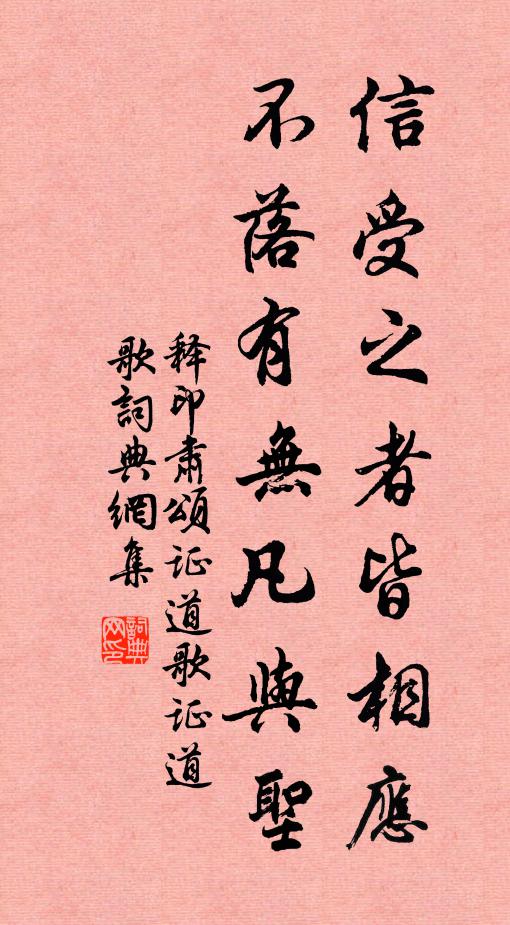 信受之者皆相應
不落有無凡與聖
释印肅頌证道歌证道
歌詞典網集
詞典网印